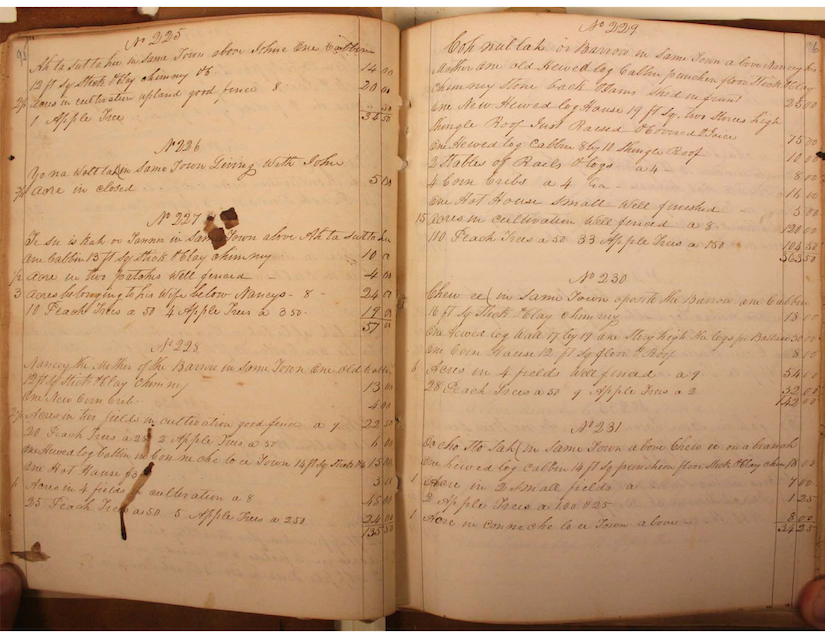 92
No 225
Ah ta sut ta hee in same Town above John One Cabbin
12 ft Sq Stick & Clay chimny 14 00
2½ Acres in cultivation upland good fence 8 20 00
1 Apple Tree 50
34 50
No 226
Yo na Wolt lah in same Town Living With John
¾ Acre in closed 5 00
No 227
Te su is kah or Tanner in same Town above Ah ta sut ta hee
one Cabbin 13 ft Sq Stick & Clay chimny 10 00
½ Acre in two patches Well fenced 4 00
3 Acres belonging to his Wife below Nancys - 8 - 24 00
10 Peach Trees a 50 4 Apple Trees a 3 50 19 00
57 00
No 228
Nancy the Mother of the Barrow in same Town One old Cabbin
12 ft Sq Stick & Clay Chimny 13 00
One New Corn Crib 4 00
2½ Acres in two fields in cultivation good fence a 9 22 50
20 Peach Trees a 25 2 Apple Trees a 50 6 00
One Hewed log Cabbin in Con ne che lo ee Town 14 ft Sq Stick & Clay 15 00
One Hot House $3 3 00
6 Acres in 4 fields in cultivation a 8 48 00
25 Peach Trees a 50 5 Apple Trees a 250 24 00
135 50
No 229
Coh nut lah or Barrow in same Town above Nancy his
Mother one old Hewed log Cabbin puncheon floor Stick & Clay
Chimny Stone back & Jams Shed in front 25 00
One New Hewed log House 19 ft Sq. two Stories high
Shingle Roof Just Raised & Covered 75 00
One Hewed log Cabbin 8 by 10 Shingle Roof 10 00
2 Stables of Rails & logs a 4 - 8 00
4 Corn Cribs a 4 16 00
One Hot House Small Well finished - 5 00
15 Acres in cultivation Well fenced a 8 120 00
110 Peach Trees a 50 33 Apple Trees a 150 104 50
363 50
No 230
Chew ee in Same Town oposite the Barrow one Cabbin
16 ft Sq Stick & Clay chimny 18 00
One Hewed log 17 by 19 one Story high the logs for 30 00
One Corn House 12 ft Sq floor & Roof 8 00
6 Acres in 4 fields Well fenced a 9 54 00
28 Peach Trees a 50 9 Apple Trees a 2 32 00
142 00
No 231
in Same Town above Chew ee on a branch
One hewed log Cabbin 14 ft Sq puncheon floor Stick & Clay chim 18 00
1 Acre in 2 Small fields a 7 00
2 Apple Trees a 1.00 & 25 1 25
1 Acre in Con ne che lo ee Town above 8 00
34 25